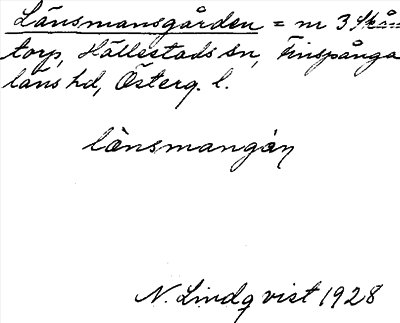 Länsmansgården = nr 3 Skån-
torp, Hällestads sn, Finspånga
läns hd, Österg. l.
länsmangȧṇ
N. Lindqvist 1928